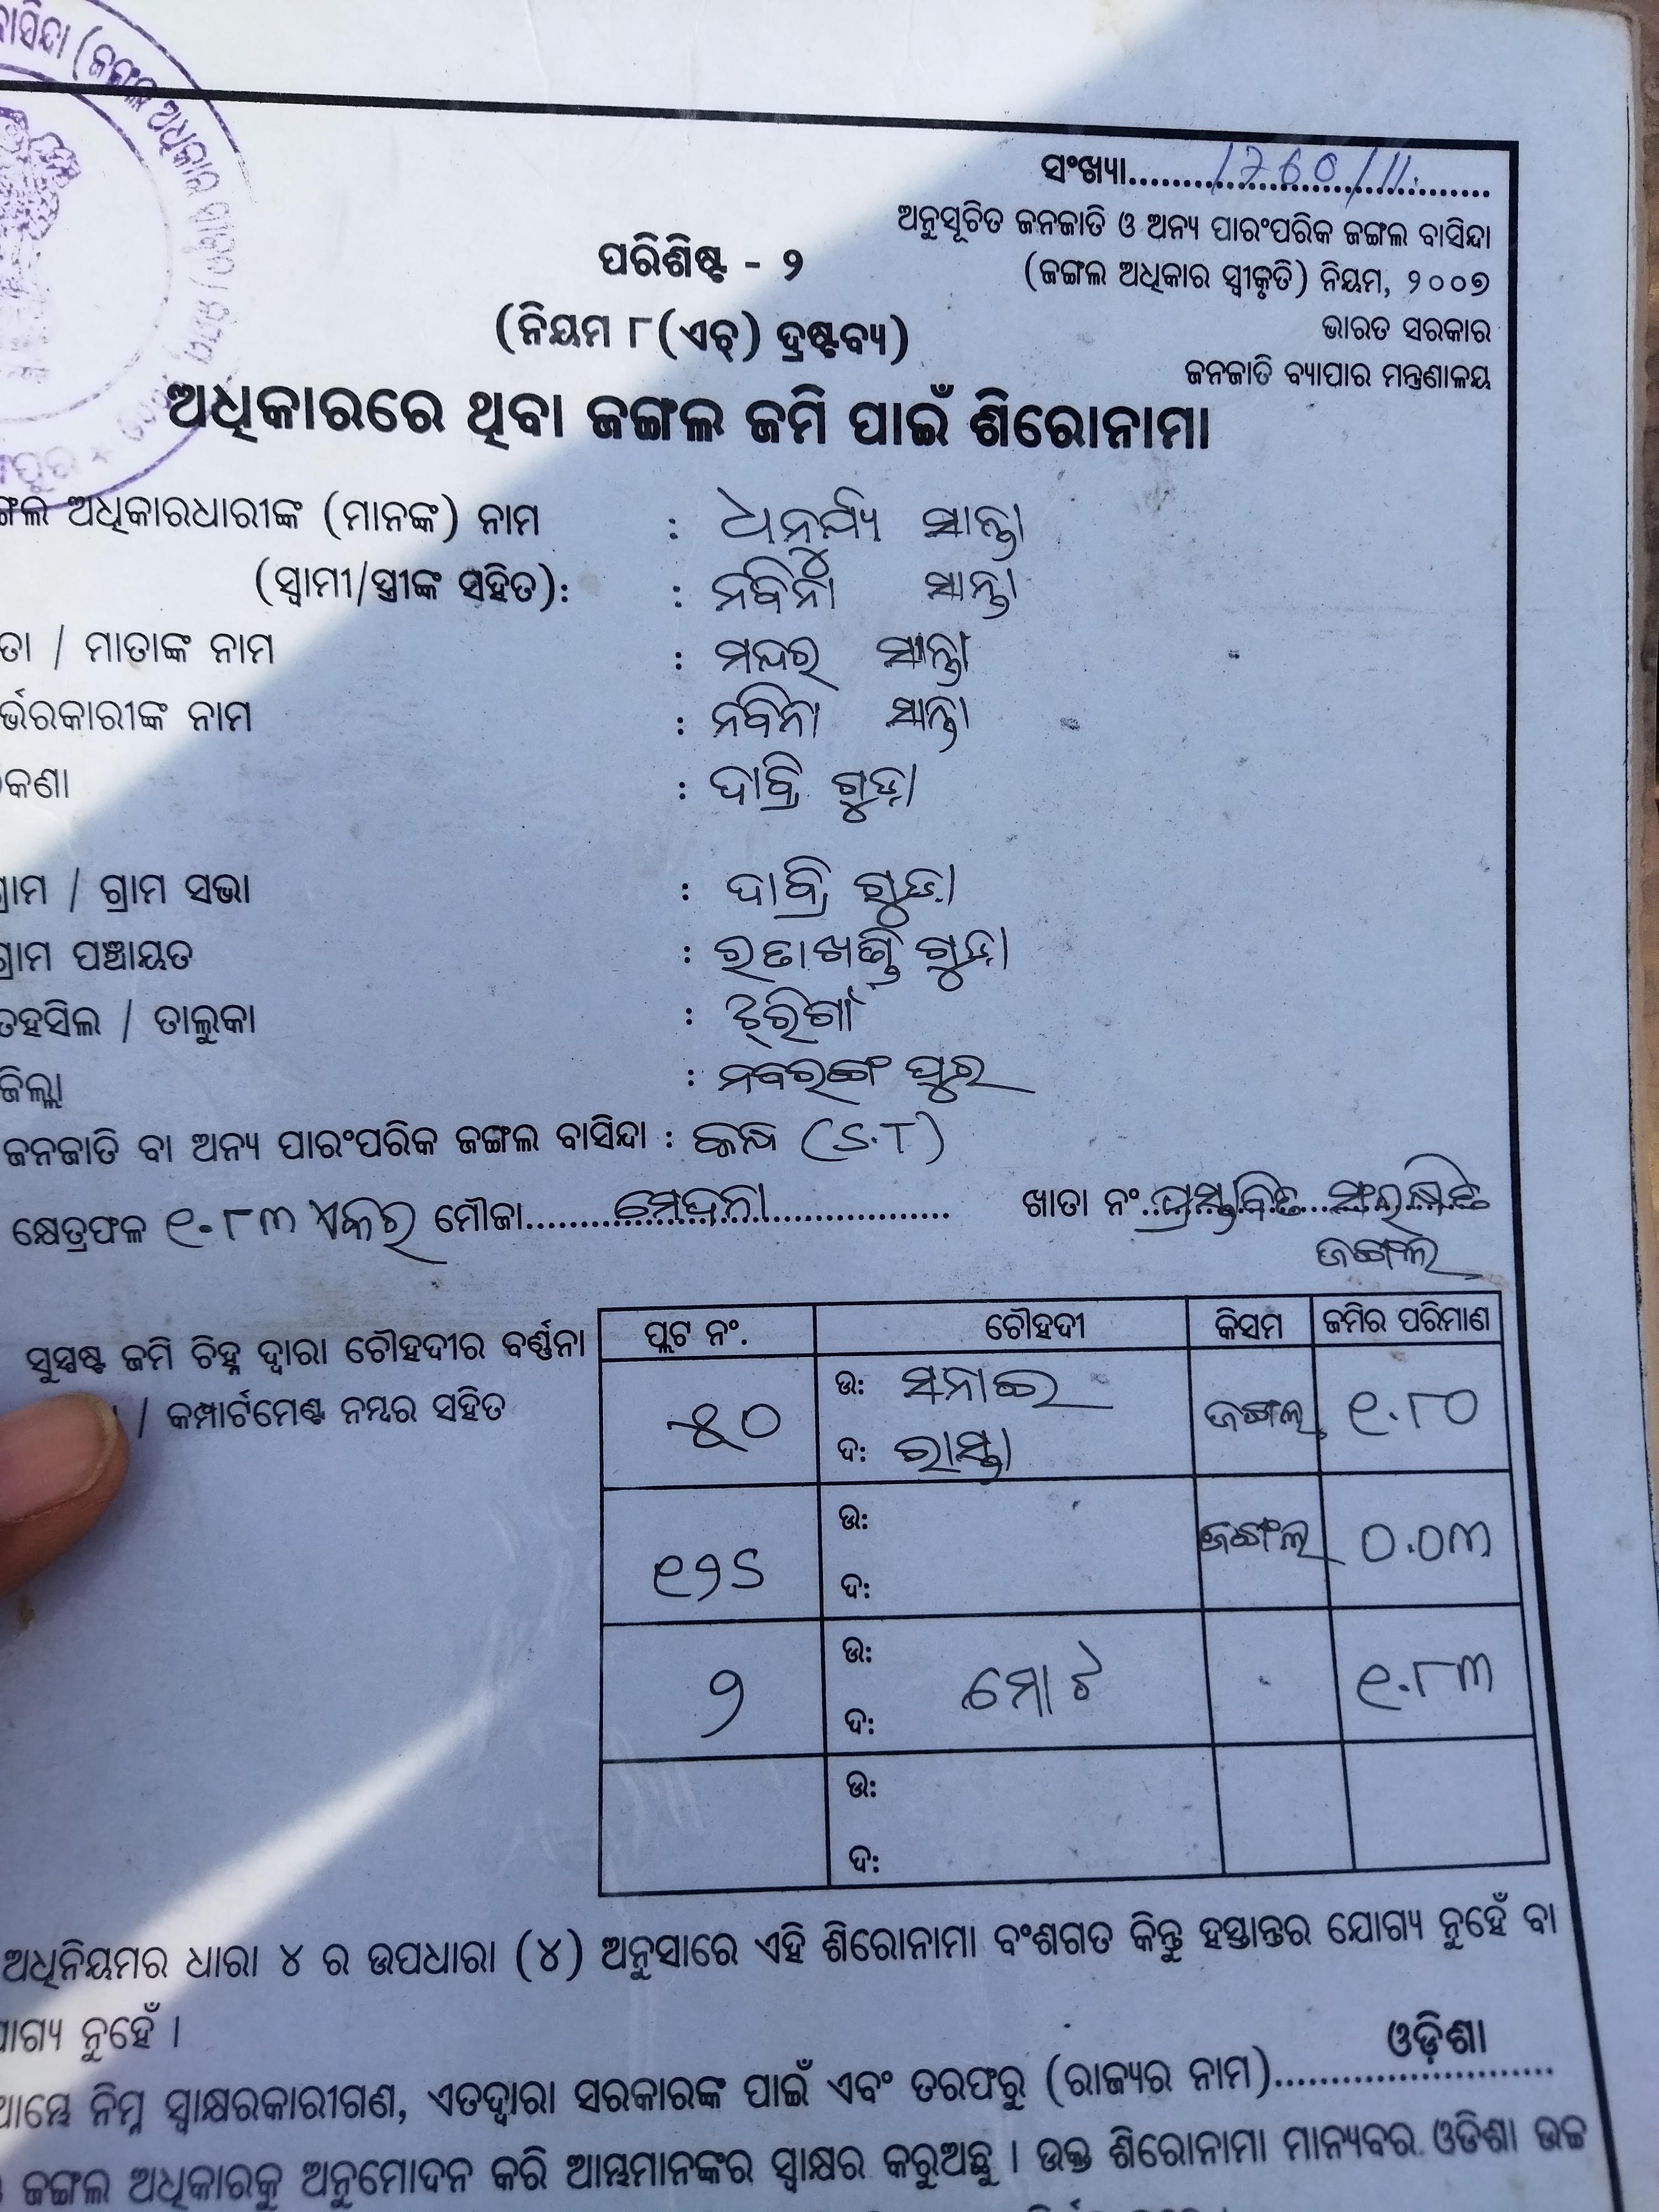 ବାସିନ୍ଦା (ଜଙ୍ଗଲ ଅଧିକାର
ସଂଖ୍ୟା 1760/11
ଅନୁସୂଚିତ ଜନଜାତି ଓ ଅନ୍ୟ ପାରଂପରିକ ଜଙ୍ଗଲ ବାସିନ୍ଦା
ପରିଶିଷ୍ଟ - ୨
(ଜଙ୍ଗଲ ଅଧିକାର ସ୍ୱୀକୃତି) ନିୟମ, ୨୦୦୭
(ନିୟମ ୮(ଏଚ୍) ଦ୍ରଷ୍ଟବ୍ୟ)
ଭାରତ ସରକାର
ଜନଜାତି ବ୍ୟାପାର ମନ୍ତ୍ରଣାଳୟ
ଅଧିକାରରେ ଥିବା ଜଙ୍ଗଲ ଜମି ପାଇଁ ଶିରୋନାମା
ଙ୍ଗଲ ଅଧିକାରଧାରୀଙ୍କ (ମାନଙ୍କ) ନାମ : ସାନ୍ତା
(ସ୍ୱାମୀ/ସ୍ତ୍ରୀଙ୍କ ସହିତ): : ନବିନା ସାନ୍ତା
ତା / ମାତାଙ୍କ ନାମ : ମନ୍ଦର ସାନ୍ତା
ର୍ଭରକାରୀଙ୍କ ନାମ : ନବିନା ସାନ୍ତା
କଣା : ଦାବ୍ରି ଗୁଡ଼ା
ଗ୍ରାମ / ଗ୍ରାମ ସଭା : ଦାବ୍ରି ଗୁଡ଼ା
ଗ୍ରାମ ପଞ୍ଚାୟତ : ରତାଖଣ୍ଡି ଗୁଡ଼ା
ତହସିଲ / ତାଲୁକା : ଝରିଗାଁ
ଜିଲ୍ଲା : ନବରଙ୍ଗ ପୁର
ଜନଜାତି ବା ଅନ୍ୟ ପାରଂପରିକ ଜଙ୍ଗଲ ବାସିନ୍ଦା : କନ୍ଧ (S.T)
କ୍ଷେତ୍ରଫଳ ୧.୮୩ ଏକର ମୌଜା ମେହନା ଖାତା ନଂ. ପ୍ରସ୍ତାବିତ ସଂରକ୍ଷିତ
ଜଙ୍ଗଲ
ସୁସ୍ପଷ୍ଟ ଜମି ଚିହ୍ନ ଦ୍ୱାରା ଚୌହଦୀର ବର୍ଣ୍ଣନା
/ କମ୍ପାର୍ଟମେଣ୍ଟ ନମ୍ବର ସହିତ
ପ୍ଲଟ ନଂ. ଚୌହଦୀ କିସମ ଜମିର ପରିମାଣ
୫୦ ଉ: ସନାଇ ଜଙ୍ଗଲ ୧.୮୦
ଦ: ରାସ୍ତା
୧୨୬ ଉ: ଜଙ୍ଗଲ ୦.୦୩
ଦ:
୨ ଉ: ମୋଟ ୧.୮୩
ଦ:
ଉ:
ଦ:
ଅଧିନିୟମର ଧାରା ୪ ର ଉପଧାରା (୪) ଅନୁସାରେ ଏହି ଶିରୋନାମା ବଂଶଗତ କିନ୍ତୁ ହସ୍ତାନ୍ତର ଯୋଗ୍ୟ ନୁହେଁ ବା
ଯୋଗ୍ୟ ନୁହେଁ ।
ଆମ୍ଭେ ନିମ୍ନ ସ୍ୱାକ୍ଷରକାରୀଗଣ, ଏତଦ୍ୱାରା ସରକାରଙ୍କ ପାଇଁ ଏବଂ ତରଫରୁ (ରାଜ୍ୟର ନାମ) ଓଡ଼ିଶା
ଜଙ୍ଗଲ ଅଧିକାରକୁ ଅନୁମୋଦନ କରି ଆମ୍ଭମାନଙ୍କର ସ୍ୱାକ୍ଷର କରୁଅଛୁ । ଉକ୍ତ ଶିରୋନାମା ମାନ୍ୟବର ଓଡିଶା ଉଚ୍ଚ